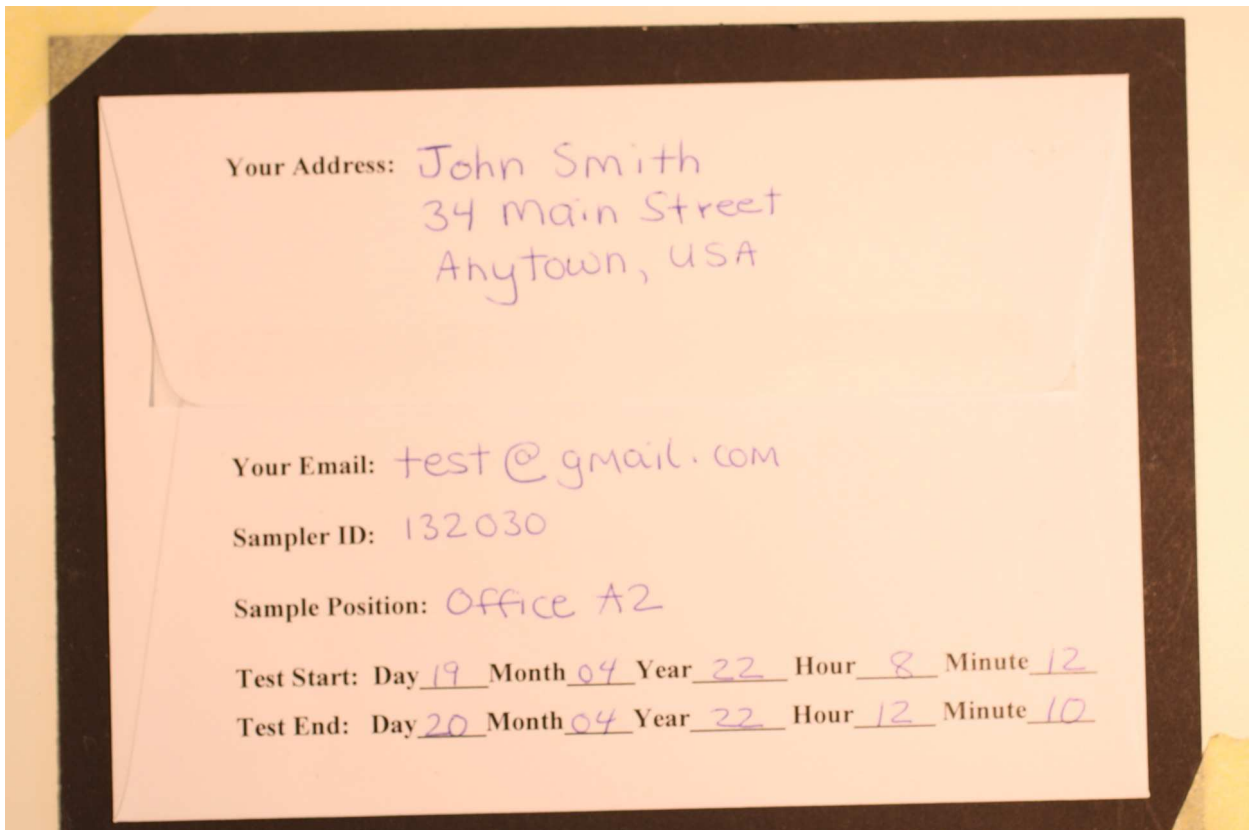 Your Address: John Smith
34 Main Street
Anytown, USA
Your Email: test@gmail.com
Sampler ID: 132030
Sample Position: Office A2
Test Start: Day 19 Month 04 Year 22 Hour 8 Minute 12
Test End: Day 20 Month 04 Year 22 Hour 12 Minute 10